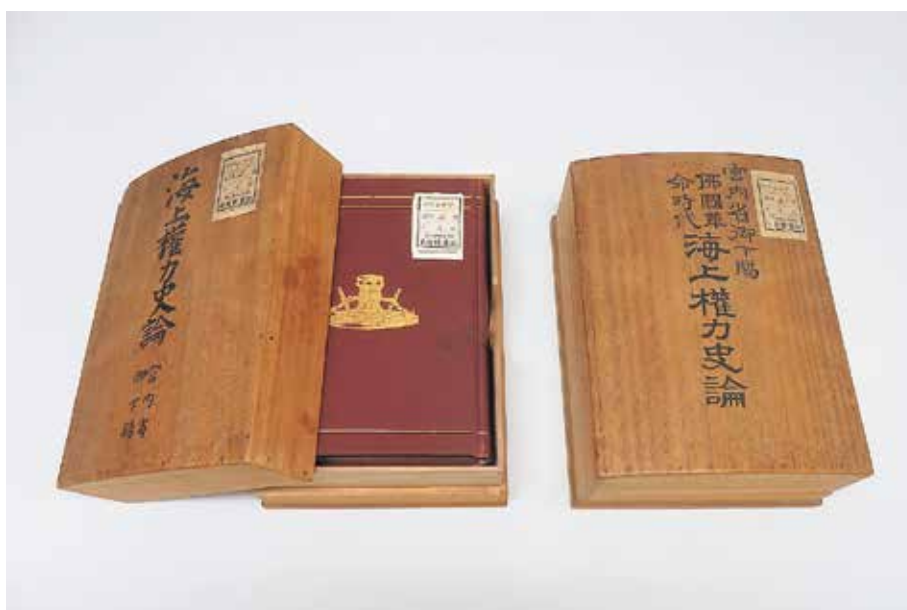 海上權力史論
宮内省
御下賜
宮内省御下賜
佛國革
命時代
海上權力史論